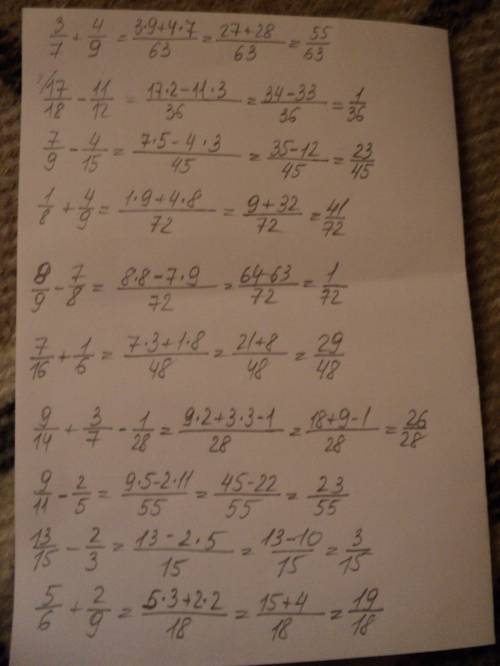 3/7 + 4/9 = (3·9+4·7)/63 = (27+28)/63 = 55/63
17/18 - 11/12 = (17·2-11·3)/36 = (34-33)/36 = 1/36
7/9 - 4/15 = (7·5-4·3)/45 = (35-12)/45 = 23/45
1/8 + 4/9 = (1·9+4·8)/72 = (9+32)/72 = 41/72
8/9 - 7/8 = (8·8-7·9)/72 = (64-63)/72 = 1/72
7/16 + 1/6 = (7·3+1·8)/48 = (21+8)/48 = 29/48
9/14 + 3/7 - 1/28 = (9·2+3·3-1)/28 = (18+9-1)/28 = 26/28
9/11 - 2/5 = (9·5-2·11)/55 = (45-22)/55 = 23/55
13/15 - 2/3 = (13-2·5)/15 = (13-10)/15 = 3/15
5/6 + 2/9 = (5·3+2·2)/18 = (15+4)/18 = 19/18